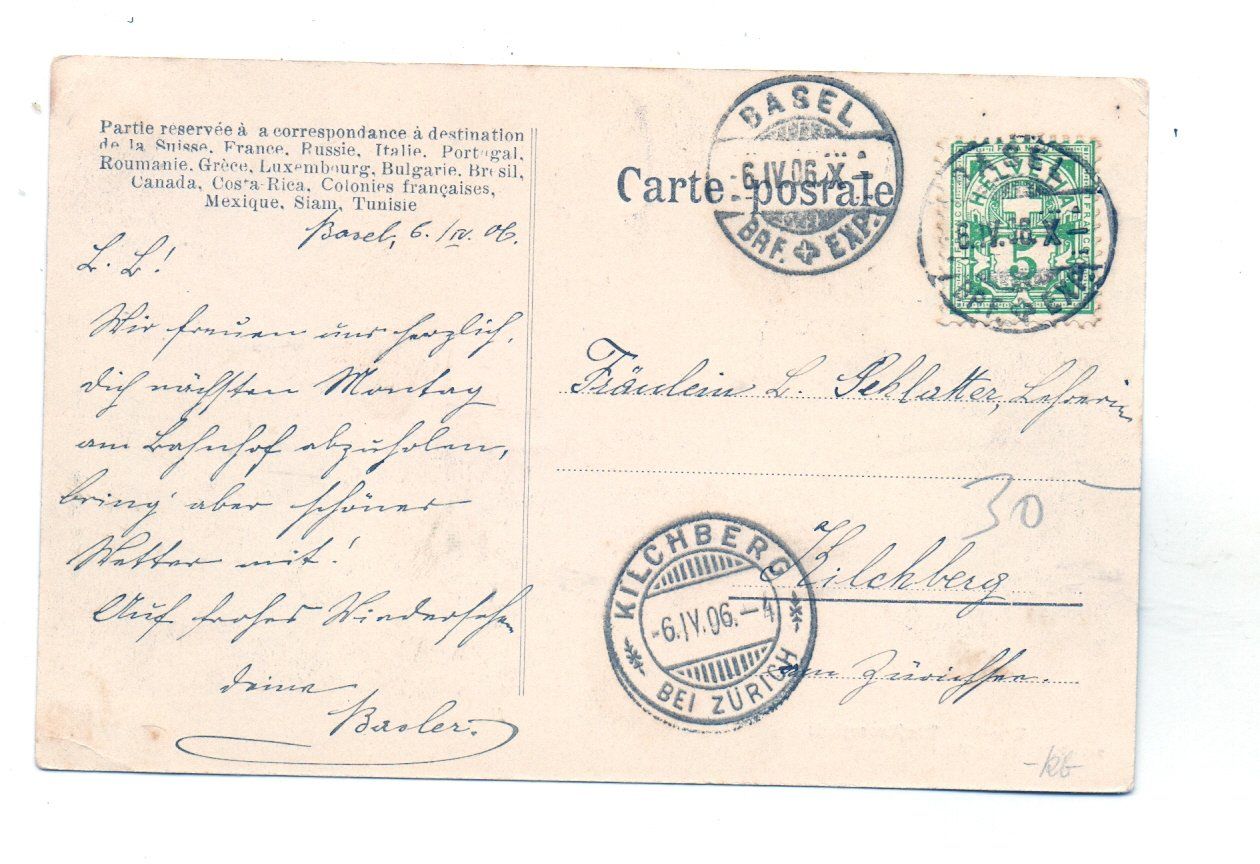 Partie reservée à a correspondance à destination
de la Suisse, France, Russie, Italie, Portugal,
Roumanie, Grèce, Luxembourg, Bulgarie, Brésil,
Canada, Costa-Rica, Colonies françaises,
Mexique, Siam, Tunisie
Basel, 6./IV. 06.
L. L!
Wir freuen uns herzlich,
dich nächsten Montag
am Bahnhof abzuholen,
bring aber schönes
Wetter mit!
Auf frohes Wiedersehn
deine
Basler.
Carte postale
BASEL
6.IV.06.X-
BRF. EXP.
BASEL
6.IV.06.X-
BRF. EXP.
HELVETIA
5
Fräulein L. Schlatter, Lehrerin
30
Kilchberg
am Zürichsee.
KILCHBERG
-6.IV.06.-4
BEI ZÜRICH